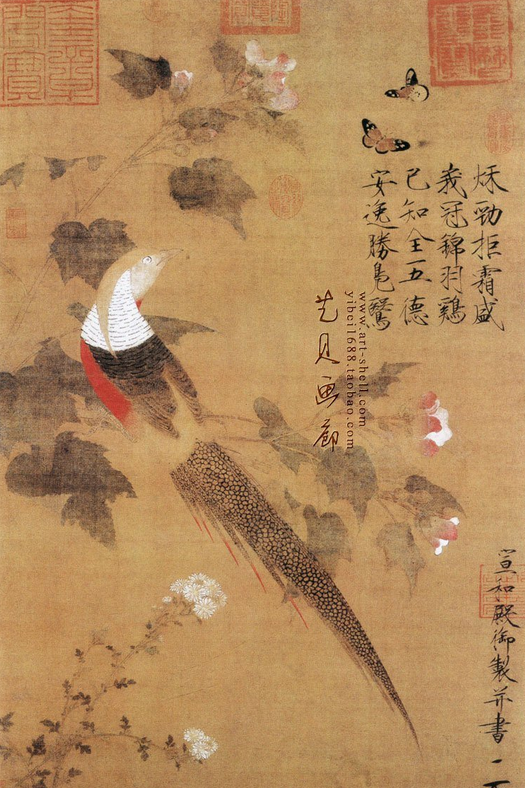 秌勁拒霜盛
峩冠錦羽鷄
已知全五德
安逸勝鳬鷖
宣和殿御製并書
艺贝画廊
www.art-shell.com
yibei1688.taobao.com